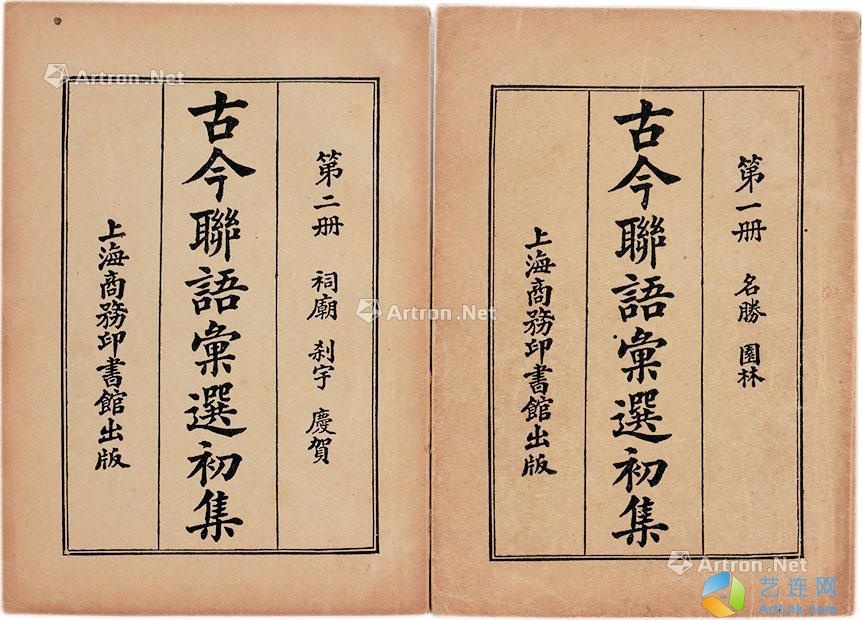 第一册 名勝 園林
古今聯語彙選初集
上海商務印書館出版
第二册 祠廟 刹宇 慶賀
古今聯語彙選初集
上海商務印書館出版
Artron.Net
Artron.Net
Artron.Net
艺连网
ArtLnk.com